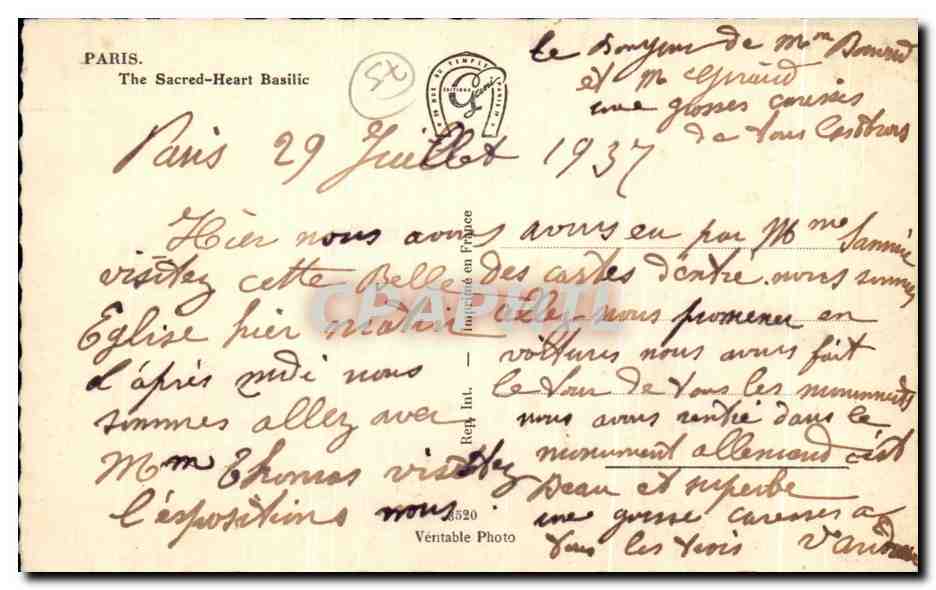 PARIS.
The Sacred-Heart Basilic
le Bonjour de Mme
et M Giraud
une grosses caresses
de tous
Paris 29 Juillet 1937
Hier nous avons
visitez cette Belle
Eglise hier matin
l'après midi nous
sommes allez avec
Mm Thomas visitez
l'expositions nous
avons eu par Mme
des cartes d'entré nous sommes
allez nous promener en
voitures nous avons fait
le tour de tous les monuments
nous avons rentré dans le
monument allemand c'est
Beau et superbe
une grosse caresses a
tous les trois
Rep. Int. — Imprimé en France
3520
Véritable Photo
CPAPHIL